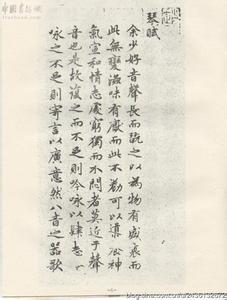 琴賦
余少好音聲長而翫之以為物有盛衰而
此無變滋味有厭而此不勌可以導養神
氣宣和情志處窮獨而不悶者莫近于聲
音也是故復之而不足則吟咏以肆志
咏之不足則寄言以廣意然八音之器歌